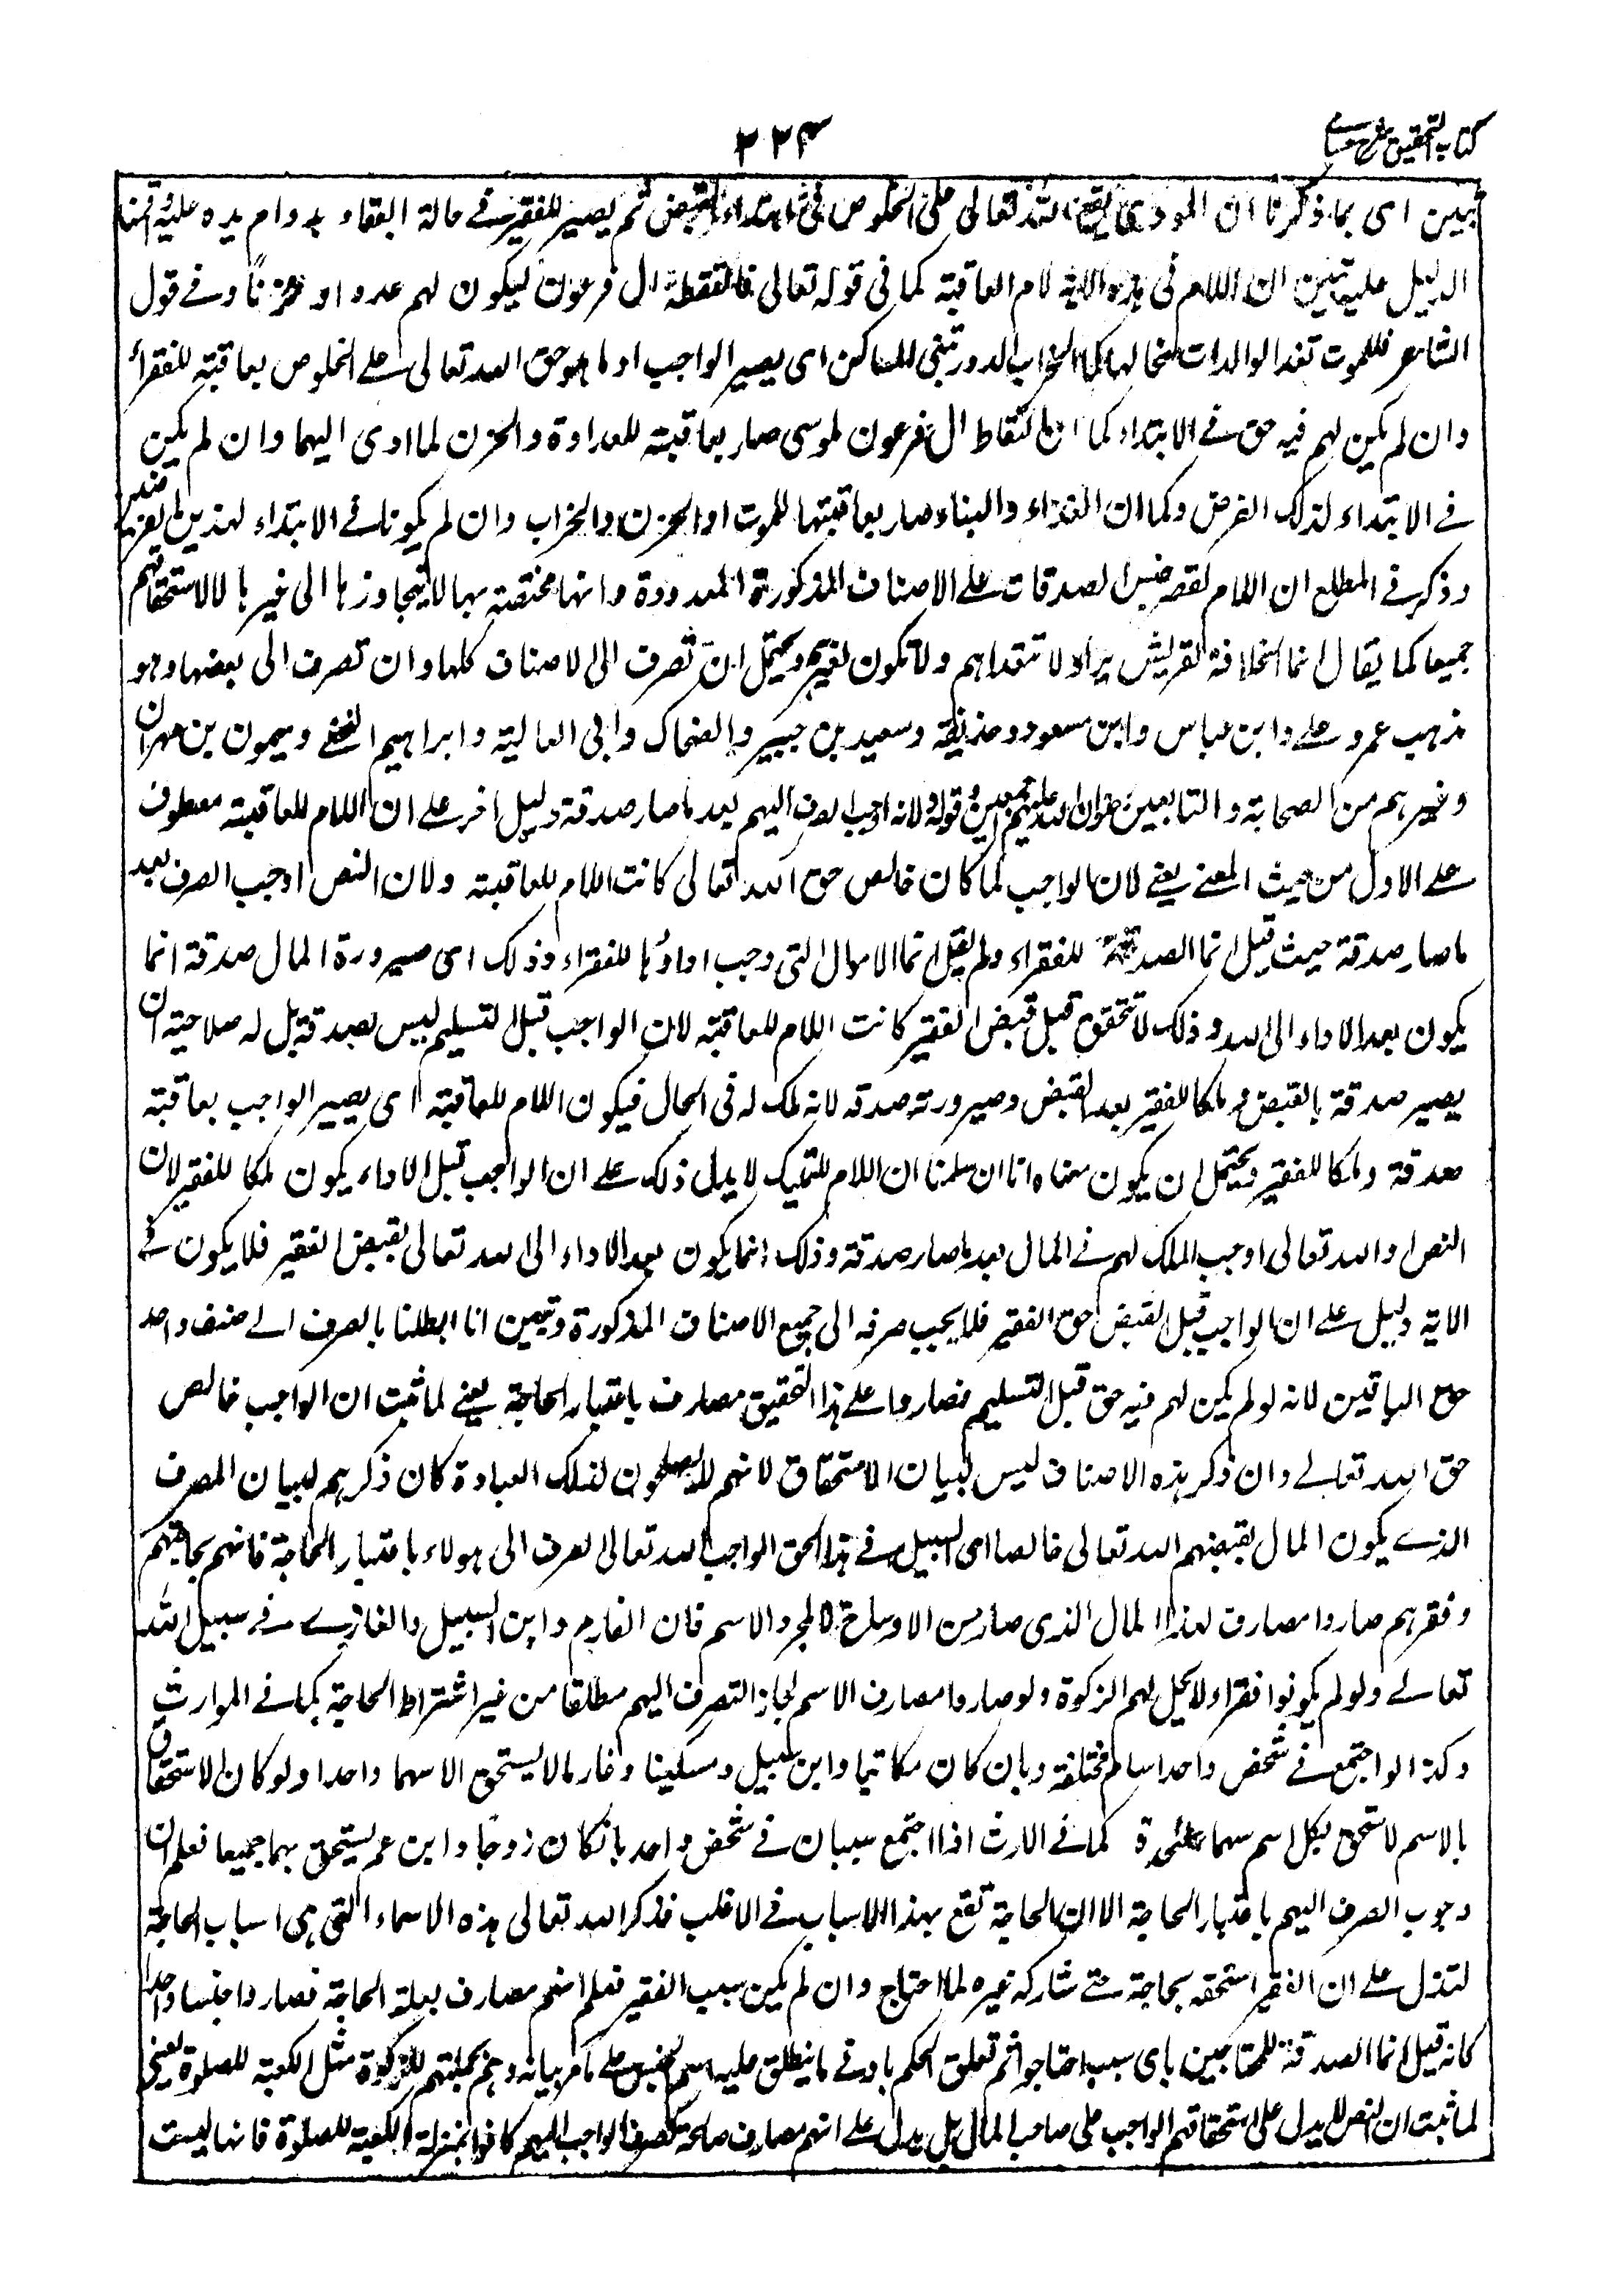 كتاب التحقيق شرح حسامی
٢٢٤
تبين اى بما ذكرنا ان المودى يقع لله تعالى على الخلوص فى ابتداء القبض ثم يصير للفقير فى حالة البقاء بدوام يده عليه
الدليل عليه تبين ان اللام فى هذه الاية لام العاقبة كما فى قوله تعالى فالتقطه ال فرعون ليكون لهم عدوا و حزنا وفى قول
الشاعر فللموت تغذ الوالدات سخالها كما لخراب الدور تبنى المساكن اى يصير الواجب اداؤه وهو حق الله تعالى على الخلوص بعاقبته للفقراء
وان لم يكن لهم فيه حق فى الابتداء كما ان التقاط ال فرعون لموسى صار بعاقبته للعداوة والحزن لما ادى اليهما وان لم يكن
فى الابتداء لذلك الغرض وكما ان الغذاء والبناء صار بعاقبتهما للموت او الحزن والخراب وان لم يكونا فى الابتداء لهذين الغرضين
وذكر فى المطلع ان اللام لقصر جنس الصدقات على الاصناف المذكورة المعدودة وانها مختصة بها لا يتجاوزها الى غيرها لا لاستحقاقهم
جميعا كما يقال انما الخلافة لقريش يراد لا تتعداهم ولا تكون لغيرهم ويحتمل ان تصرف الى الاصناف كلها وان تصرف الى بعضها وهو
مذهب عمر وعلى وابن عباس وابن مسعود وحذيفة وسعيد بن جبير والضحاك وابى العالية وابراهيم النخعى وميمون بن مهران
وغيرهم من الصحابة والتابعين رضوان الله عليهم اجمعين قوله ولانه اوجب الصرف اليهم بعد ما صار صدقة دليل اخر على ان اللام للعاقبة معطوف
على الاول من حيث المعنى يعنى لان الواجب لما كان خالص حق الله تعالى كانت اللام للعاقبة ولان النص اوجب الصرف بعد
ما صار صدقة حيث قيل انما الصدقة للفقراء ولم يقل انما الاموال التى وجب اداؤها للفقراء وذلك اى صيرورة المال صدقة انما
يكون بعد الاداء الى الله وذلك لا تتحقق قبل قبض الفقير كانت اللام للعاقبة لان الواجب قبل التسليم ليس بصدقة بل له صلاحية ان
يصير صدقة بالقبض و ملكا للفقير بعد القبض وصيرورته صدقة لانه ملك له فى الحال فيكون اللام للعاقبة اى يصير الواجب بعاقبته
صدقة وملكا للفقير ويحتمل ان يكون معناه انا ان سلمنا ان اللام للتمليك لا يدل ذلك على ان الواجب قبل الاداء يكون ملكا للفقير لان
النص او الله تعالى اوجب الملك لهم فى المال بعد ما صار صدقة وذلك انما يكون بعد الاداء الى الله تعالى بقبض الفقير فلا يكون فى
الاية دليل على ان الواجب قبل القبض حق الفقير فلا يجب صرفه الى جميع الاصناف المذكورة وتبين انا ابطلنا بالصرف الى صنف واحد
حق الباقين لانه لو لم يكن لهم فيه حق قبل التسليم فصاروا على هذا التحقيق مصارف باعتبار الحاجة يعنى لما ثبت ان الواجب خالص
حق الله تعالى وان ذكر هذه الاصناف ليس لبيان الاستحقاق لانهم لا يصلحون لذلك العبادة كان ذكرهم لبيان المصرف
الذى يكون المال بقبضهم لله تعالى خالصا اى السبيل فى هذا الحق الواجب لله تعالى لصرف الى هولاء باعتبار الحاجة فانهم بحاجتهم
وفقرهم صاروا مصارف لهذا المال الذى صار من الاوساخ لا لمجرد الاسم فان الغارم وابن السبيل والغازى فى سبيل الله
تعالى ولو لم يكونوا فقراء لا يحل لهم الزكوة ولو صاروا مصارف الاسم لجاز التصرف اليهم مطلقا من غير اشتراط الحاجة كما فى الموارث
وكذا لو اجتمع فى شخص واحد اسام مختلفة وبان كان مكاتبا وابن سبيل ومسكينا وغارما لا يستحق الا سهما واحدا ولو كان الاستحقاق
بالاسم لاستحق بكل اسم سهما على حدة كما فى الارث اذا اجتمع سببان فى شخص واحد بان كان زوجا وابن عم يستحق بهما جميعا فعلم ان
وجوب الصرف اليهم باعتبار الحاجة الا ان الحاجة تقع بهذا الاسباب فى الاغلب فذكر الله تعالى هذه الاسماء التى هى اسباب الحاجة
لتدل على ان الفقير استحقه بحاجة حتى شاركه غيره لما احتاج وان لم يكن سبب الفقير فعلم انهم مصارف بعلة الحاجة فصاروا جنسا واحدا
كانه قيل انما الصدقة للمحتاجين باى سبب احتاجوا ثم تعلق الحكم بادنى ما ينطلق عليه اسم الجنس على ما مر بيانه وهم بجملتهم للزكوة مثل الكعبة للصلوة يعنى
لما ثبت ان النص لا يدل على استحقاقهم الواجب على صاحب المال بل يدل على انهم مصارف صالحة لصرف الواجب اليهم كانوا بمنزلة الكعبة للصلوة فانها ليست